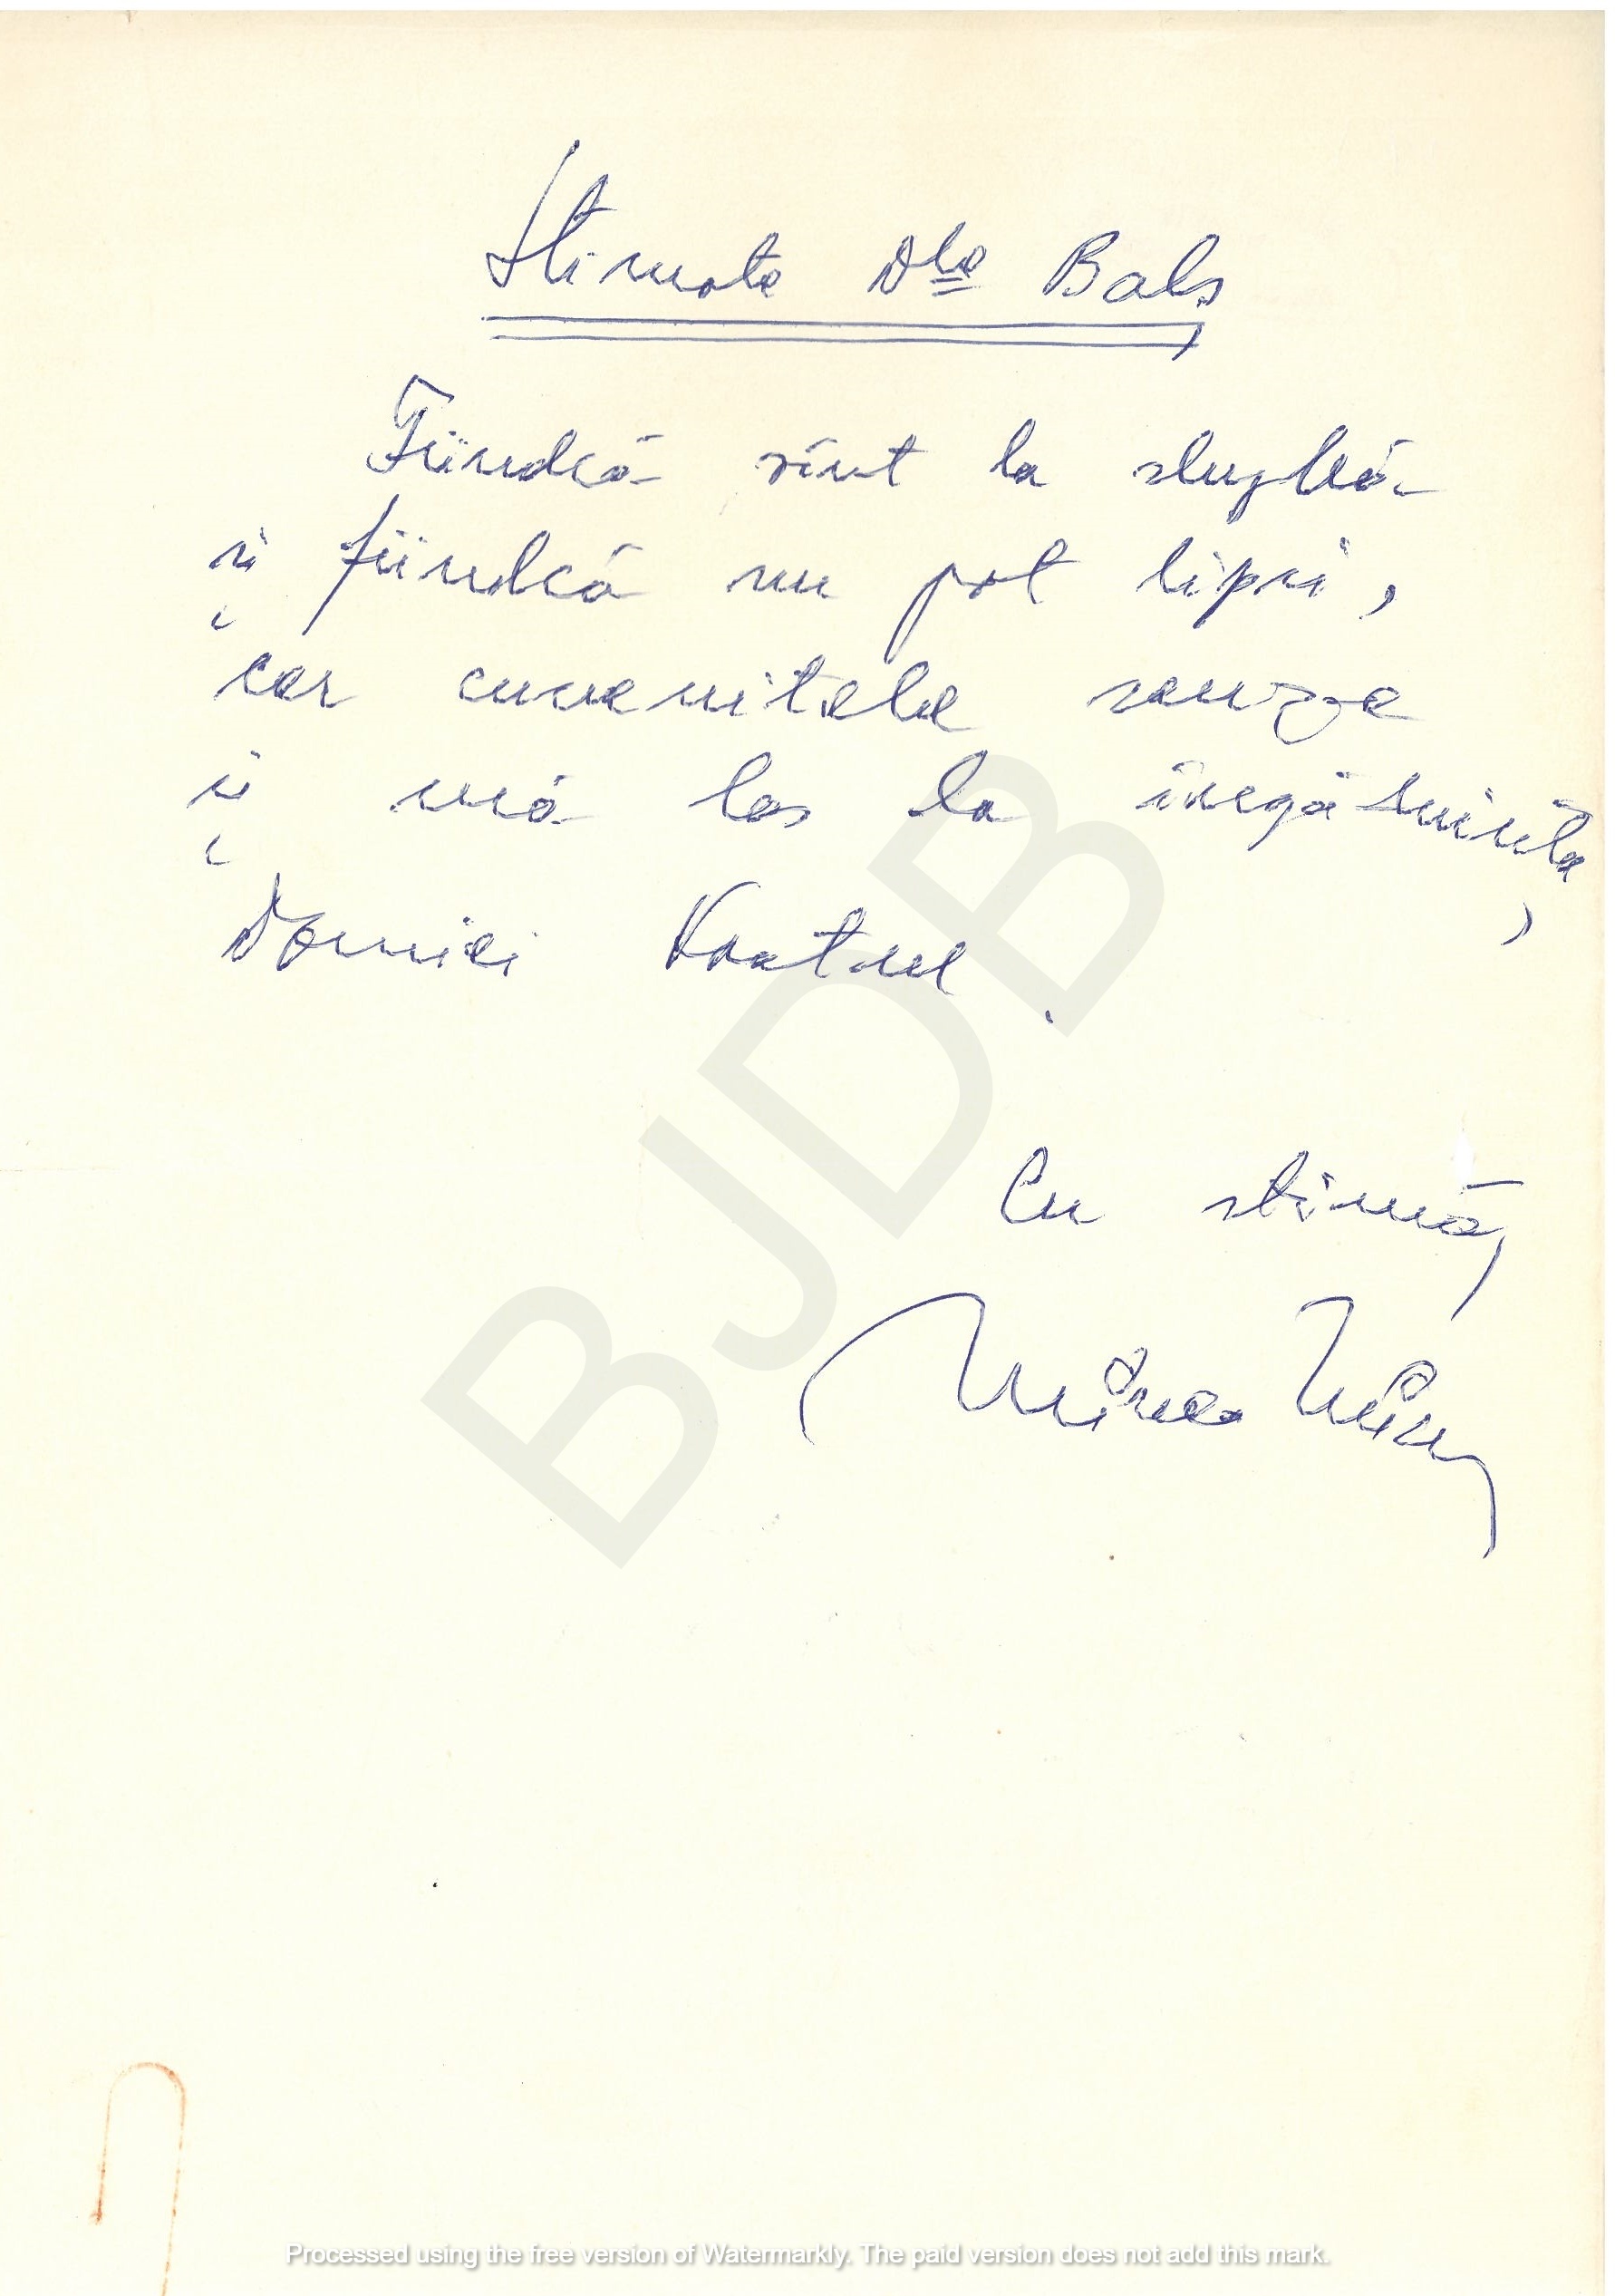 Stimate Dle Balș
Fiindcă sînt la slujbă
și fiindcă nu pot lipsi,
cer cuvenitele scuze
și mă las la îngăduința
Domniei Voastre.
Cu stimă,
Mircea
BJDB
Processed using the free version of Watermarkly. The paid version does not add this mark.